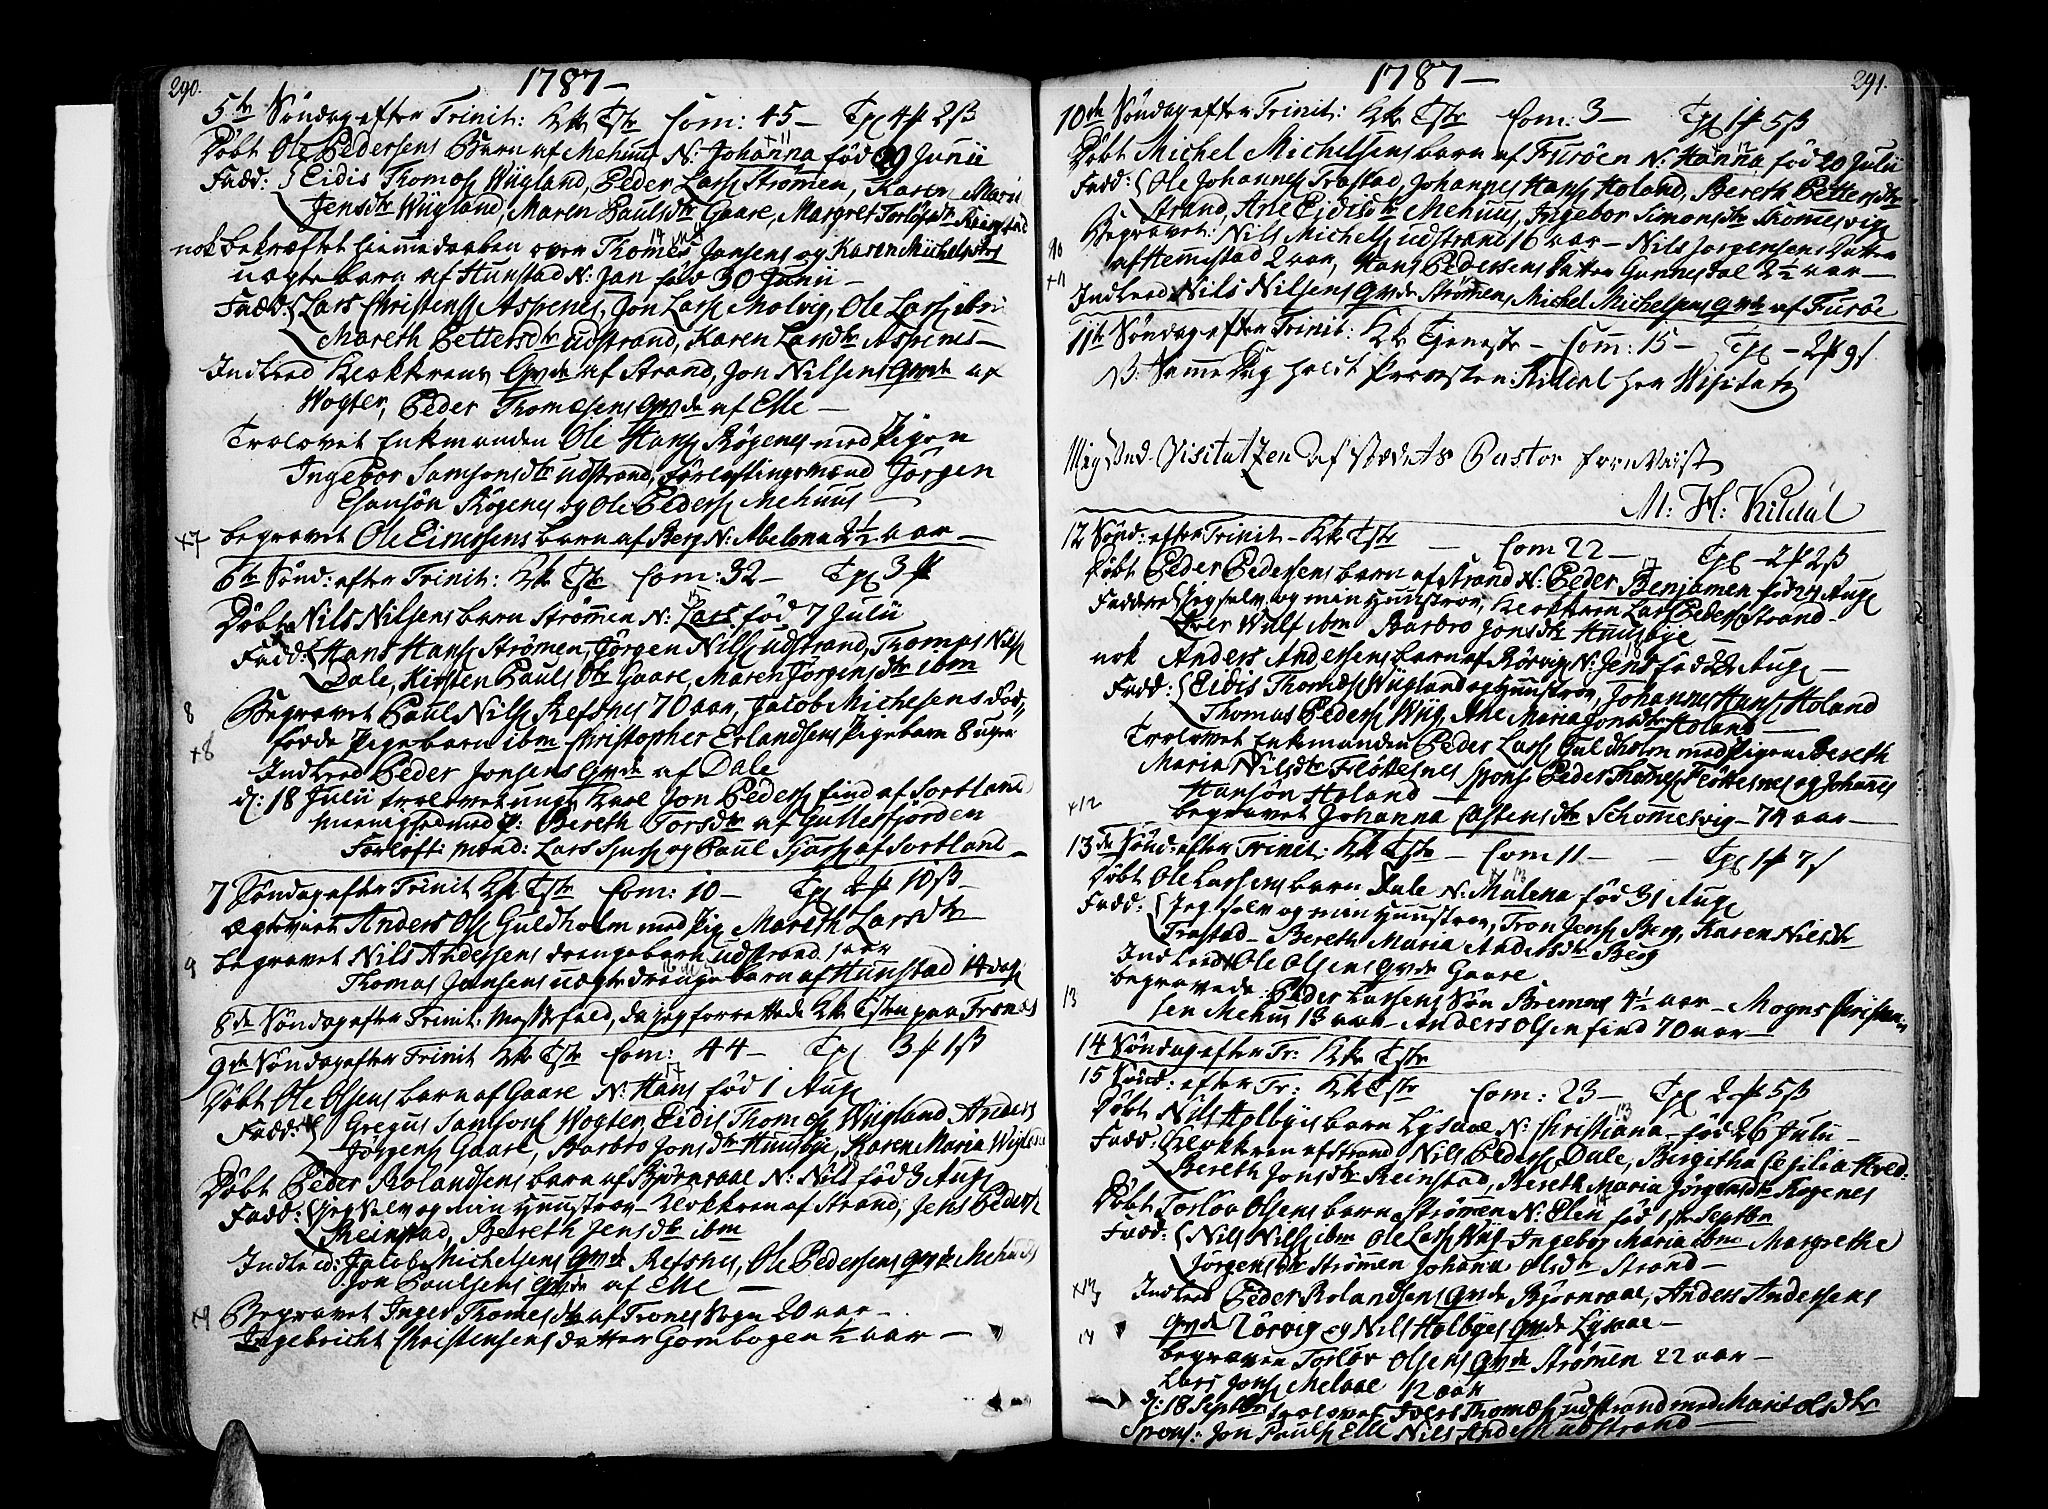 290.
1787 —
5te Søndag efter Trinit: Kk Tste Com: 45 — Tpl 4 2ß
Døbt Ole Pedersens Barn af Mehuus N: Johanna fød 29 Junii
Fadd: Eidis Thomes Wiigland, Peder Lars Strømen, Karen Maria
Jensdtr Wiigland, Maren Paulsdtr Gaare, Margret Torlofsdtr Reinstad
nok bekræftet hiemmedaaben over Thomes Jansens og Karen Michelsdtrs
uægte barn af Hunstad N: Jan fød 30 Junii —
Fadd: Lars Christens Aspenes, Jon Lars Molvig, Ole Lars ibm
Mareth Pettersdtr udstrand, Karen Larsdtr Aspenes —
Indleed Klokkerens Qvde af Strand, Jon Nilsens Qvde af
Wogter, Peder Thomesens Qvde af Elle —
Trolovet Enkmanden Ole Hans Røgenes med Pigen
Ingebor Samsonsdtr udstrand, Forløftingsmænd Jørgen
Esansøn Røgenes og Ole Peders Mehuus —
+7 begravet Ole Einersens barn af Berg N: Abelona 2½ aar —
6te Sønd: efter Trinit: Kk Tste Com: 32 — Tpl 3
Døbt Nils Nilsens barn Strømen N: Lars fød 7 Julii
Fadd: Hans Hans Strømen, Jørgen Nils udstrand, Thomas Nils
Dale, Kirsten Pauls dtr Gaare, Maren Jørgensdtr ibm
8 Begravet Paul Nils Refsnes 70 aar, Jacob Michelsens død,,
+8 fødde Pigebarn ibm Christopher Erlandsens Pigebarn 8 uger
Indleed Peder Jonsens Qvde af Dale
d: 18 Julii trolovet ung Karl Jon Peders find af Sortland
med P: Bereth Torsdtr af Gullesfjorden
Forløft: mænd: Lars Sjurs og Paul Sjurs af Sortland —
7 Søndag efter Trinit Kk Tste Com: 10 — Tpl 2 10ß —
Ægteviet Anders Ols Guldholm med Pig Mareth Larsdtr
9 begravet Nils Andersens drengebarn udstrand aar
Thomas Jansens uægte drenge barn af Hunstad 14 dag
8de Søndag efter Trinit: Messefald, da jeg forrettede Kk Tsten paa Tronæs
9de Søndag efter Trinit Kk Tste Com: 44 — Tpl 3 1ß
Døbt Ole Olsens barn af Gaare N: Hans fød 1 Aug
Fadd: Gregus Samsons Wogter, Eidis Thomes Wiigland Anders
Jørgens Gaare, Barbro Jonsdtr Huusbye, Karen Maria Wigland
Døbt Peder Rolandsens barn af Bjørnraae N: Nils fød 3 Aug
Fadd: jeg selv og min Huustrov — Klokkeren af Strand, Jens Peders
Reinstad, Bereth Jensdtr ibm
Indleed: Jacob Michelsens Qvde Refsnes, Ole Pedersens Qvde Mehuus
Jon Paulsens Qvde af Elle —
+9 Begravet Inger Thomesdtr af Trones Sogn 20 aar —
Ingebricht Christensens datter Gombogen ½ aar —
1787 —
291.
10de Søndag efter Trinit: Kk Tste Com: 3 — Tpl 1 5ß
Døbt Michel Michelsens barn af Furøen N: Hanna fød 20 Julii
Fadd: Ole Johannes Trastad, Johannes Hans Holand, Bereth Pettersdtr
Strand, Ane Eidisdtr Mehuus, Ingebor Simonsdtr Thomesvig
10 Begravet: Nils Michels udstrands 6 aar — Nils Jørgensens Datter
+11 af Hemmestad 2 aar, Hans Pedersens Datter Gunnesdal 2½ aar —
Indleed Nils Nilsens Qvde Strømen, Michel Michelsens Qvde af Furøe
11te Søndag efter Trinit: Kk Tjeneste — Com: 15 — Tpl — 2 9ß
NB: Samme Dag holdt Provsten: Kildal her Wisitatz
Mig Und. Visitatzen af stædets Pastor foreviist
M: H: Kildal
12 Sønd: efter Trinit — Kk Tste — Com 22 — Tpl — 2 2ß
Døbt Peder Pedersens barn af Strand N: Peder Benjamen fød 24 Aug
Faddere jeg selv og min Huustrov, Klokkeren Lars Peders Strand —
Iver Wulf ibm Barbro Jonsdtr Huusbye —
nok Anders Andersens barn af Rørvig N: Jens fød 22 Aug —
Fadd: Eidis Thomes Wiigland og Huustrov, Johannes Hans Holand
Thomas Peders Wiig, Ane Maria Jonsdtr Holand —
Trolovet Enkmanden Peder Lars Guldholm med Pigen Bereth
Maria Nilsdtr Fløttesnes Spons Peder Thomes Fløttesnes og Johannes
Hansøn Holand —
+12 begravet Johanna Castensdtr Schomesvig — 74 aar —
13de Sønd: efter Trinit: Kk Tste — Com 11 — Tpl 1 7ß
Døbt Ole Larsens barn Dale N: Malena fød 31 Aug
Fadd: Jeg selv og min Huustrov, Tron Jens Berg, Karen Nilsdtr
Trastad — Bereth Maria Andersdtr Berg
Indleed Ole Olsens Qvde Gaare
13 begravede Peder Larsens Søn Bremnes 4½ aar — Mogns Christen-
sen Mehus 13 aar — Anders Olsen find 70 aar —
14 Søndag efter Tr: Kk Tste
15 Sønd: efter Tr: Kk Tste Com: 23 — Tpl 2 5ß
Døbt Nils Holbyes barn Lysaae N: Christiana — fød 26 Julii —
Fadd: Klokkeren af strand Nils Peders Dale, Bergitha Cesilia Hved:
Bereth Jonsdtr Reinstad, Bereth Maria Jørgensdtr Røgenes
Døbt Torløv Olsens barn Strømen N: Elen fød 1ste Septbr
Fadd: Nils Nils ibm Ole Lars Wiig Ingebor Maria ibm Margrethe
Jørgensdtr Strømen Johana Olsdtr Strand —
+13 Indleed Peder Rolandsens Qvde Bjørnraae, Anders Andersens
Qvde Rørvig og Nils Holbyes Qvde Lysaae —
14 begraven Torløv Olsens Qvde Strømen 22 aar —
Lars Jons Melaae 12 aar
d: 18 Septbr trolovet Iver Thomes udstrand med Marit Olsdtr
Spons: Jon Pauls Elle Nils Anders udstrand —